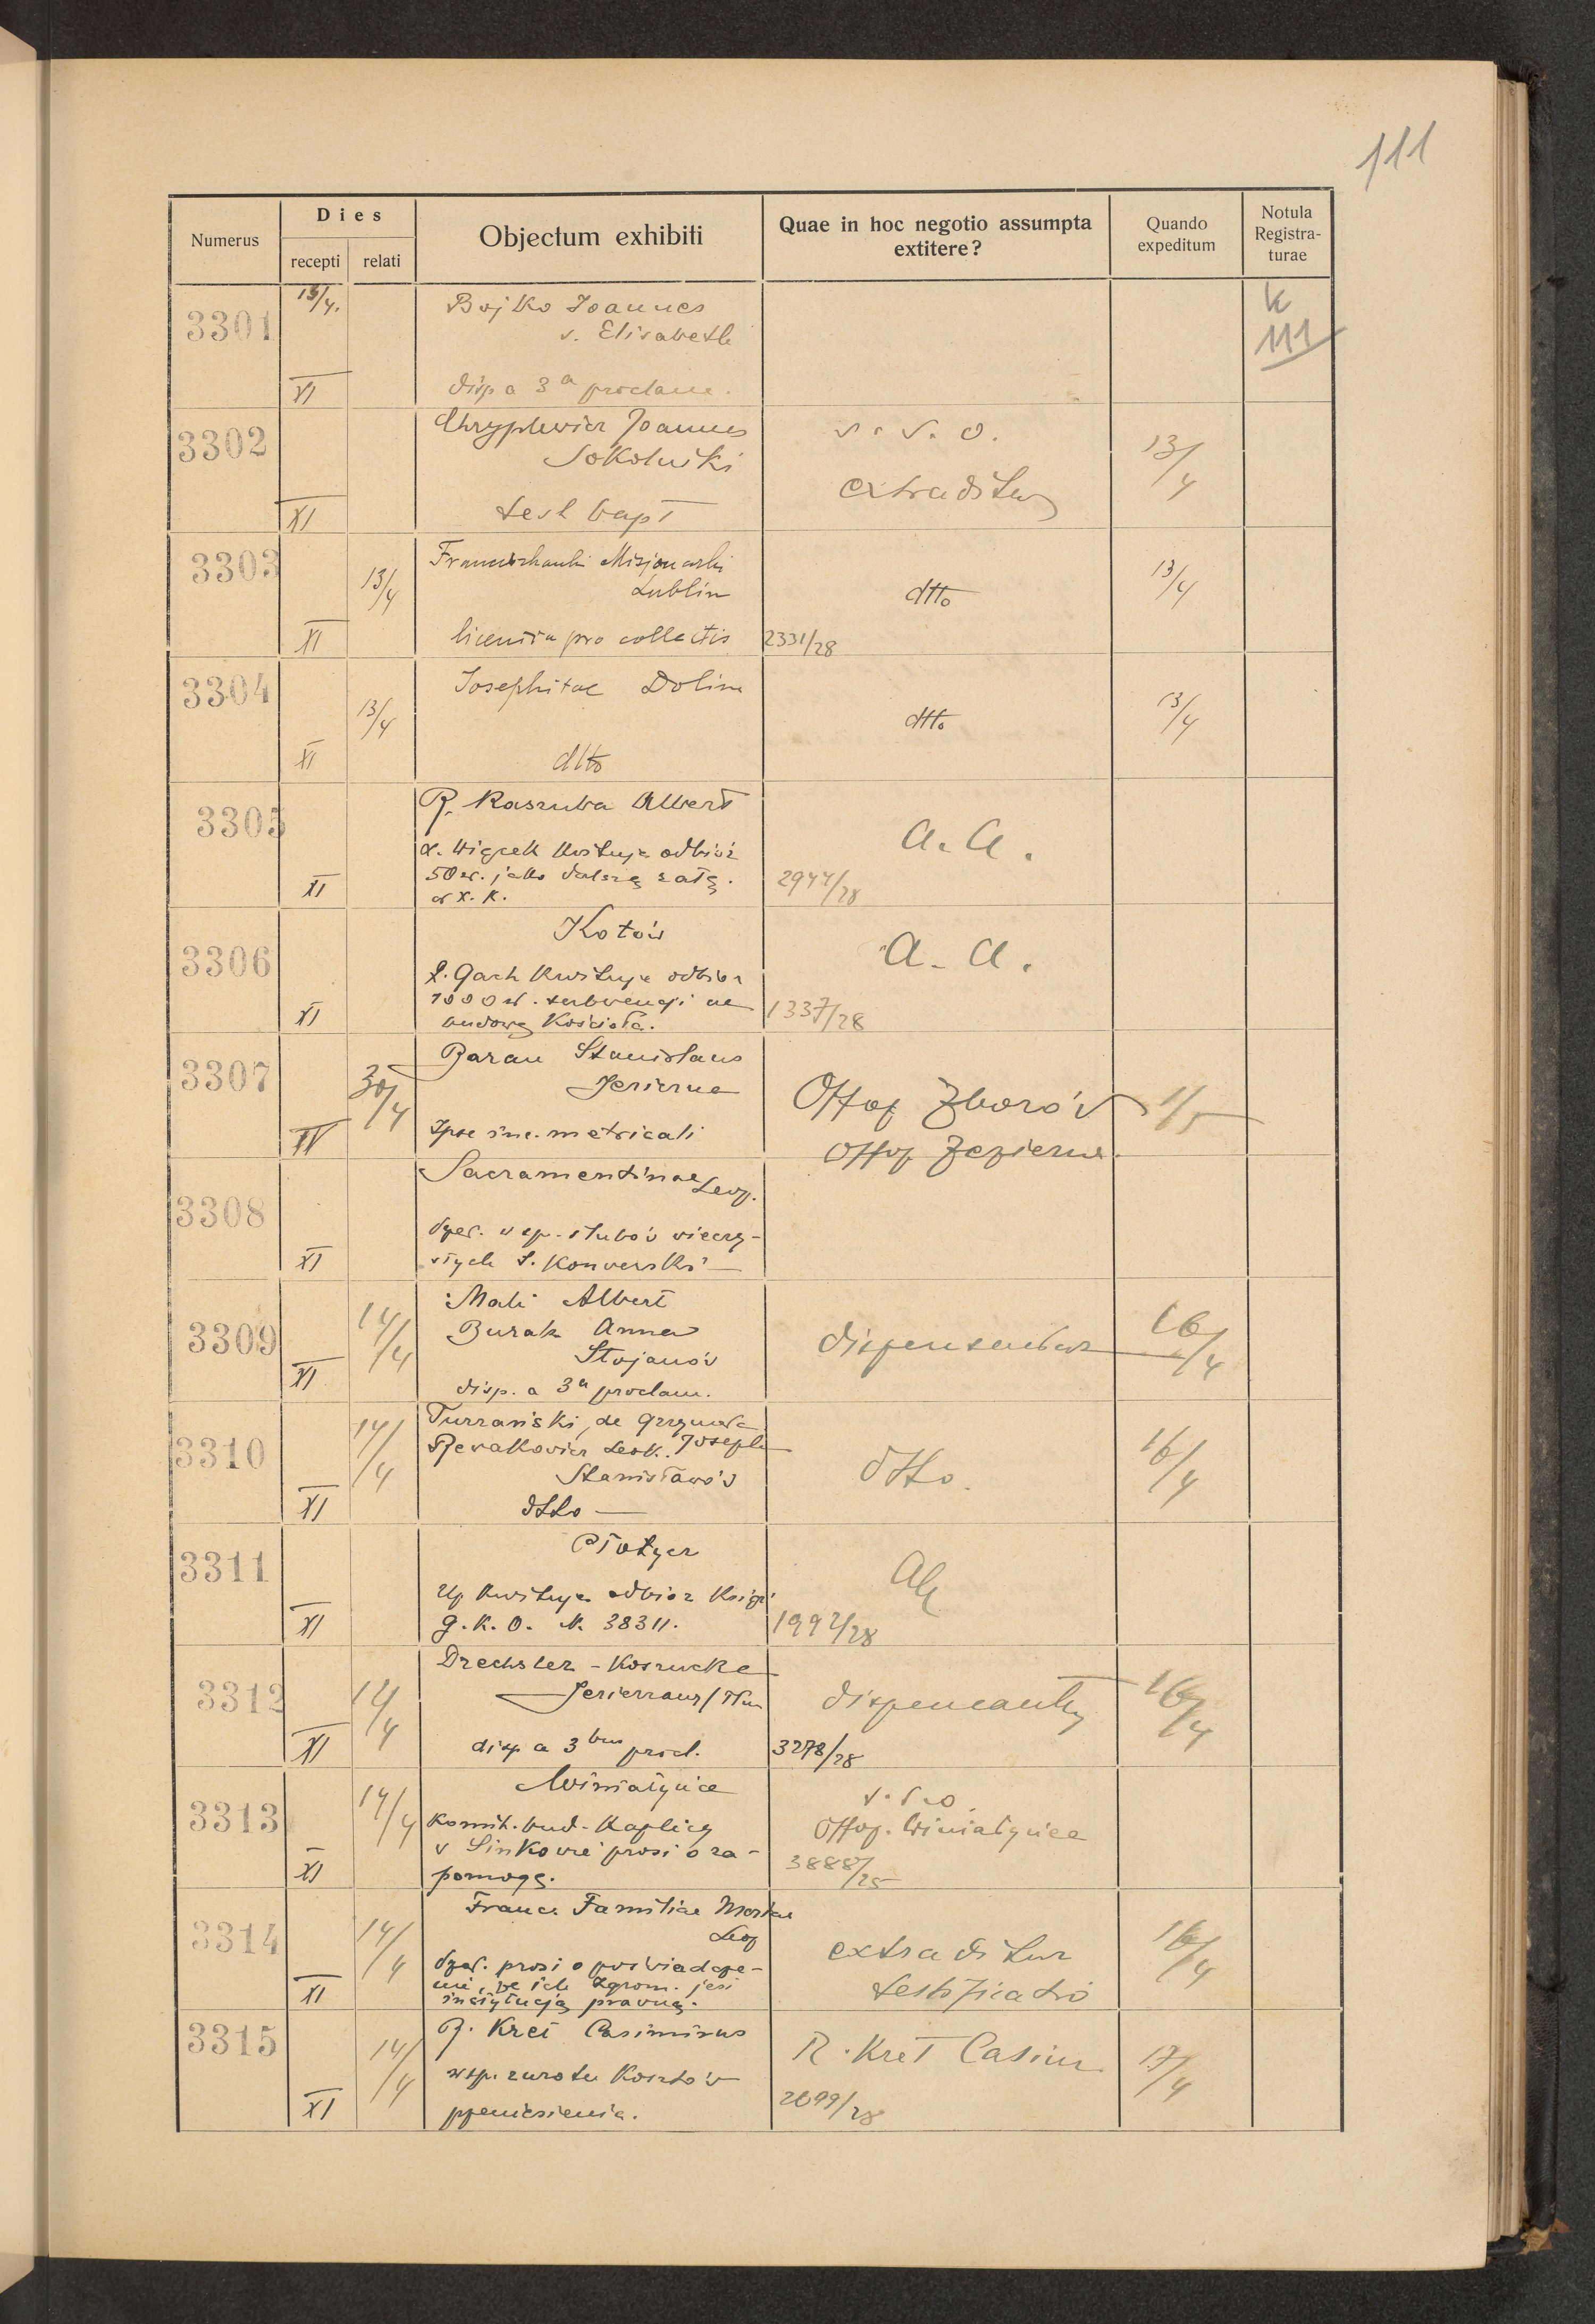 111
Numerus
Dies
recepti
relati
Objectum exhibiti
Quae in hoc negotio assumpta
extitere?
Quando
expeditum
Notula
Registra-
turae
3301
13/4.
XI
Bojko Joannes
s. Elisabeth
disp a 3ª proclam.
k
111
3302
XI
Joannes
Sokolniki
test bapt
s. s. o.
extraditur
13/4
3303
XI
13/4
Franciszkanki Misjonarki
Lublin
licentia pro collectis
dtto
2331/28
13/4
3304
XI
13/4
Josephitae Dolina
dtto
dtto
13/4
3305
XI
R. Kaszuba Albert
X. Wiącek kwituje odbiór
50 zł. jako dalszą ratę.
X. K.
a. a.
2944/28
3306
XI
Kotów
X. Gach kwituje odbiór
1000 zł. subwencji na
budowę Kościoła.
a. a.
1337/28
3307
XV
30/4
Baran Stanislaus
Jezierna
metricali
Offop Zborów
Offop Jezierna
1/5
3308
XI
Sacramentinae Leop.
wsp. ślubów wieczy-
stych S. Konwerski
3309
XI
14/4
Mali Albert
Burak Anna
Stojanów
disp. a 3ª proclam.
dispensantur
16/4
3310
XI
14/4
Turzański de Grzymała
Joseph
Stanisławów
dtto
dtto.
16/4
3311
XI
Płotycz
Up kwituje odbiór
G. K. O. N. 38311.
1992/28
3312
XI
14/4
Drechsler - Koszucka
disp a 3bus procl.
dispensantur
3278/28
16/4
3313
XI
14/4
Winiatynce
Komit. bud. Kaplicy
w Sinkowie prosi o za-
pomogę.
s. s. o.
Offop. Winiatynce
3888/25
3314
XI
14/4
Franc. Familiae Mariae
Leop
prosi o poświadcze-
nie, że ich zgrom. jest
instytucją prawną.
extraditur
testificatio
16/4
3315
XI
14/4
R. Kret Casimirus
wsp. zwrotu Kosztów
przeniesienia.
R. Kret Casim.
2699/28
17/4